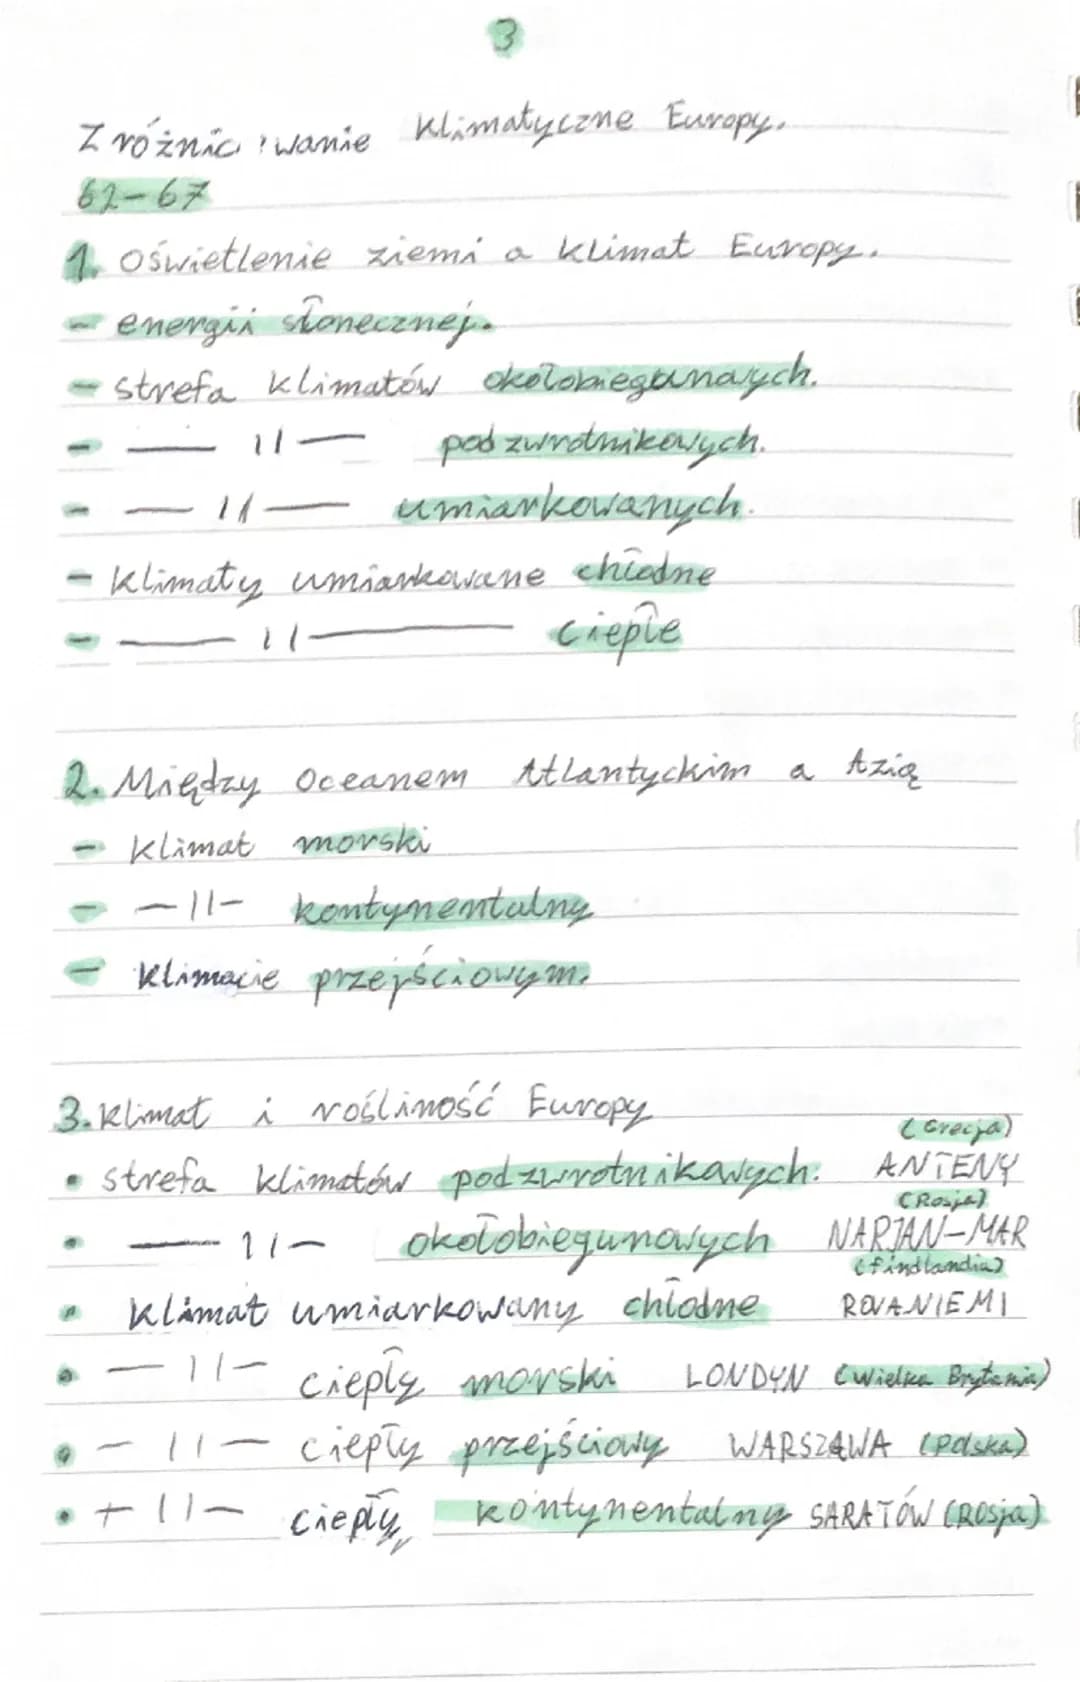 3
Zróżnic wanie Klimatyczne Europy.
62-67
1. Oświetlenie ziemi a klimat Europy.
- energii słonecznej.
- strefa klimatów okołobiegunowych.
- — 11 — podzwrotnikowych.
- — 11 — umiarkowanych.
- Klimaty umiarkowane chłodne
- — 11 — Ciepłe
2. Między Oceanem Atlantyckim a Azią
- klimat morski
- - 11 - kontynentalny
- klimacie przejściowym.
3. Klimat i rośliność Europy
(Grecja)
• strefa klimatów podzwrotnikowych: ANTENY
(Rosja)
• — 11 - okołobiegunowych NARJAN-MAR
(findlandia)
• klimat umiarkowany chłodne ROVANIEMI
• — 11 - ciepły morski LONDYN (Wielka Brytania)
• - 11 - ciepły przejściowy WARSZAWA (Polska)
• + 11 - ciepły, kontynentalny SARATÓW (Rosja)